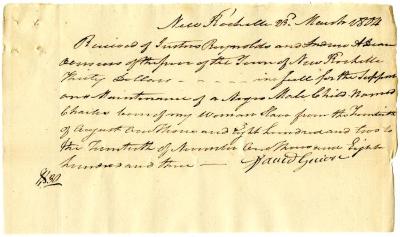 New Rochelle March 1804
Received of Justus Reynolds and Andrew A Dean
overseers of the poor of the Town of New Rochelle
Thirty Dollars - - - - in full for the Support
and Maintenance of a Negro Male Child Named
Charles born of my Woman Slave from the Twentieth
of August One Thous and Eight hundred and two to
the Twentieth of November One thousand Eight
hundred and three —
David Guion